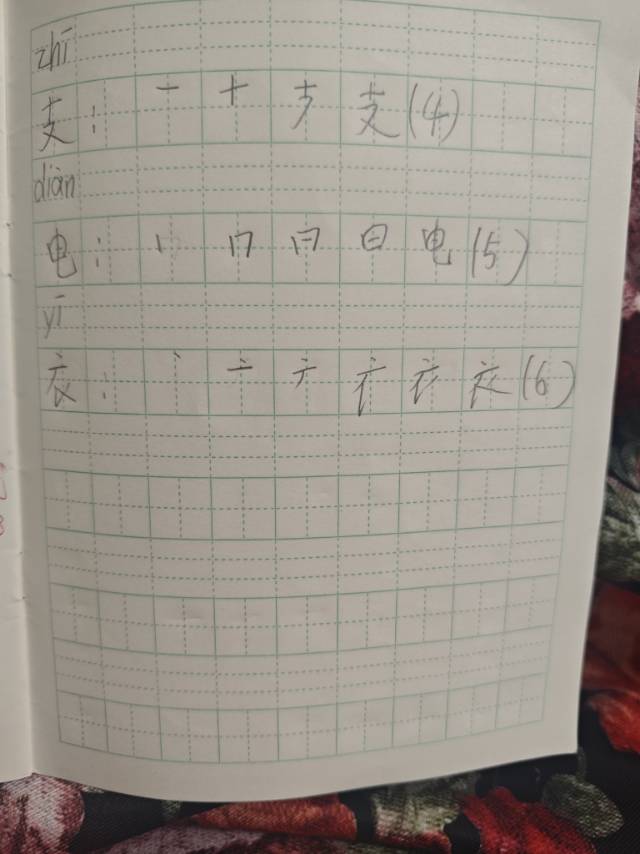 zhī
支： 一 十 支 (4)
diàn
电： 丨 冂 日 电 (5)
yī
衣： 丶 亠 衣 (6)